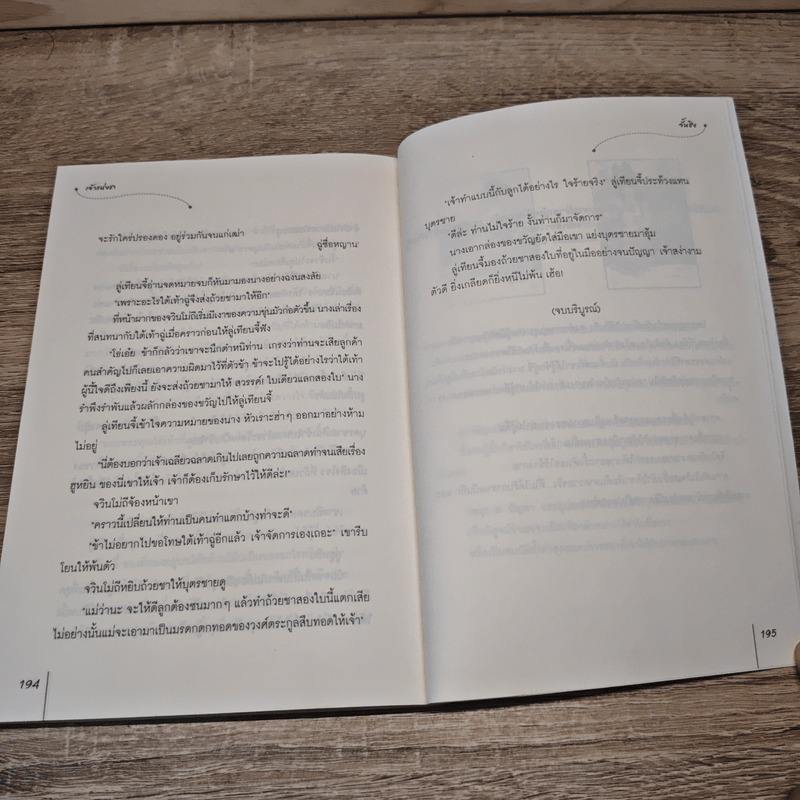 เจ้าแห่งชา
จะรักใคร่ปรองดอง อยู่ร่วมกันจนแก่เฒ่า
ฉู่ซื่อหญาน'
ลู่เทียนจี้อ่านจดหมายจบก็หันมามองนางอย่างฉงนสงสัย
"เพราะอะไรใต้เท้าฉู่จึงส่งถ้วยชามาให้อีก"
ที่หน้าผากของจวินโม่ถีเริ่มมีเงาของความขุ่นมัวก่อตัวขึ้น นางเล่าเรื่อง
ที่สนทนากับใต้เท้าฉู่เมื่อคราวก่อนให้ลู่เทียนจี้ฟัง
"โธ่เอ๊ย ข้าก็กลัวว่าเขาจะนึกตำหนิท่าน เกรงว่าท่านจะเสียลูกค้า
คนสำคัญไปก็เลยเอาความผิดมาไว้ที่ตัวข้า ข้าจะไปรู้ได้อย่างไรว่าใต้เท้า
ผู้นี้ใจดีถึงเพียงนี้ ยังจะส่งถ้วยชามาให้ สวรรค์! ใบเดียวแลกสองใบ" นาง
รำพึงรำพันแล้วผลักกล่องของขวัญไปให้ลู่เทียนจี้
ลู่เทียนจี้เข้าใจความหมายของนาง หัวเราะฮ่าๆ ออกมาอย่างห้าม
ไม่อยู่
"นี่ต้องบอกว่าเจ้าเฉลียวฉลาดเกินไปเลยถูกความฉลาดทำจนเสียเรื่อง
ฮูหยิน ของนี่เขาให้เจ้า เจ้าก็ต้องเก็บรักษาไว้ให้ดีล่ะ!"
จวินโม่ถีจ้องหน้าเขา
"คราวนี้เปลี่ยนให้ท่านเป็นคนทำแตกบ้างท่าจะดี"
"ข้าไม่อยากไปขอโทษใต้เท้าฉู่อีกแล้ว เจ้าจัดการเองเถอะ" เขารีบ
โยนให้พ้นตัว
จวินโม่ถีหยิบถ้วยชาให้บุตรชายดู
"แม่ว่านะ จะให้ดีลูกต้องซนมากๆ แล้วทำถ้วยชาสองใบนี้แตกเสีย
ไม่อย่างนั้นแม่จะเอามาเป็นมรดกตกทอดของวงศ์ตระกูลสืบทอดให้เจ้า"
194
จั้นชิง
"เจ้าทำแบบนี้กับลูกได้อย่างไร ใจร้ายจริง" ลู่เทียนจี้ประท้วงแทน
บุตรชาย
"ดีล่ะ ท่านไม่ใจร้าย งั้นท่านก็มาจัดการ"
นางเอากล่องของขวัญยัดใส่มือเขา แย่งบุตรชายมาอุ้ม
ลู่เทียนจี้มองถ้วยชาสองใบที่อยู่ในมืออย่างจนปัญญา เจ้าสง่างาม
ตัวดี ยิ่งเกลียดก็ยิ่งหนีไม่พ้น เฮ้อ!
(จบบริบูรณ์)
195